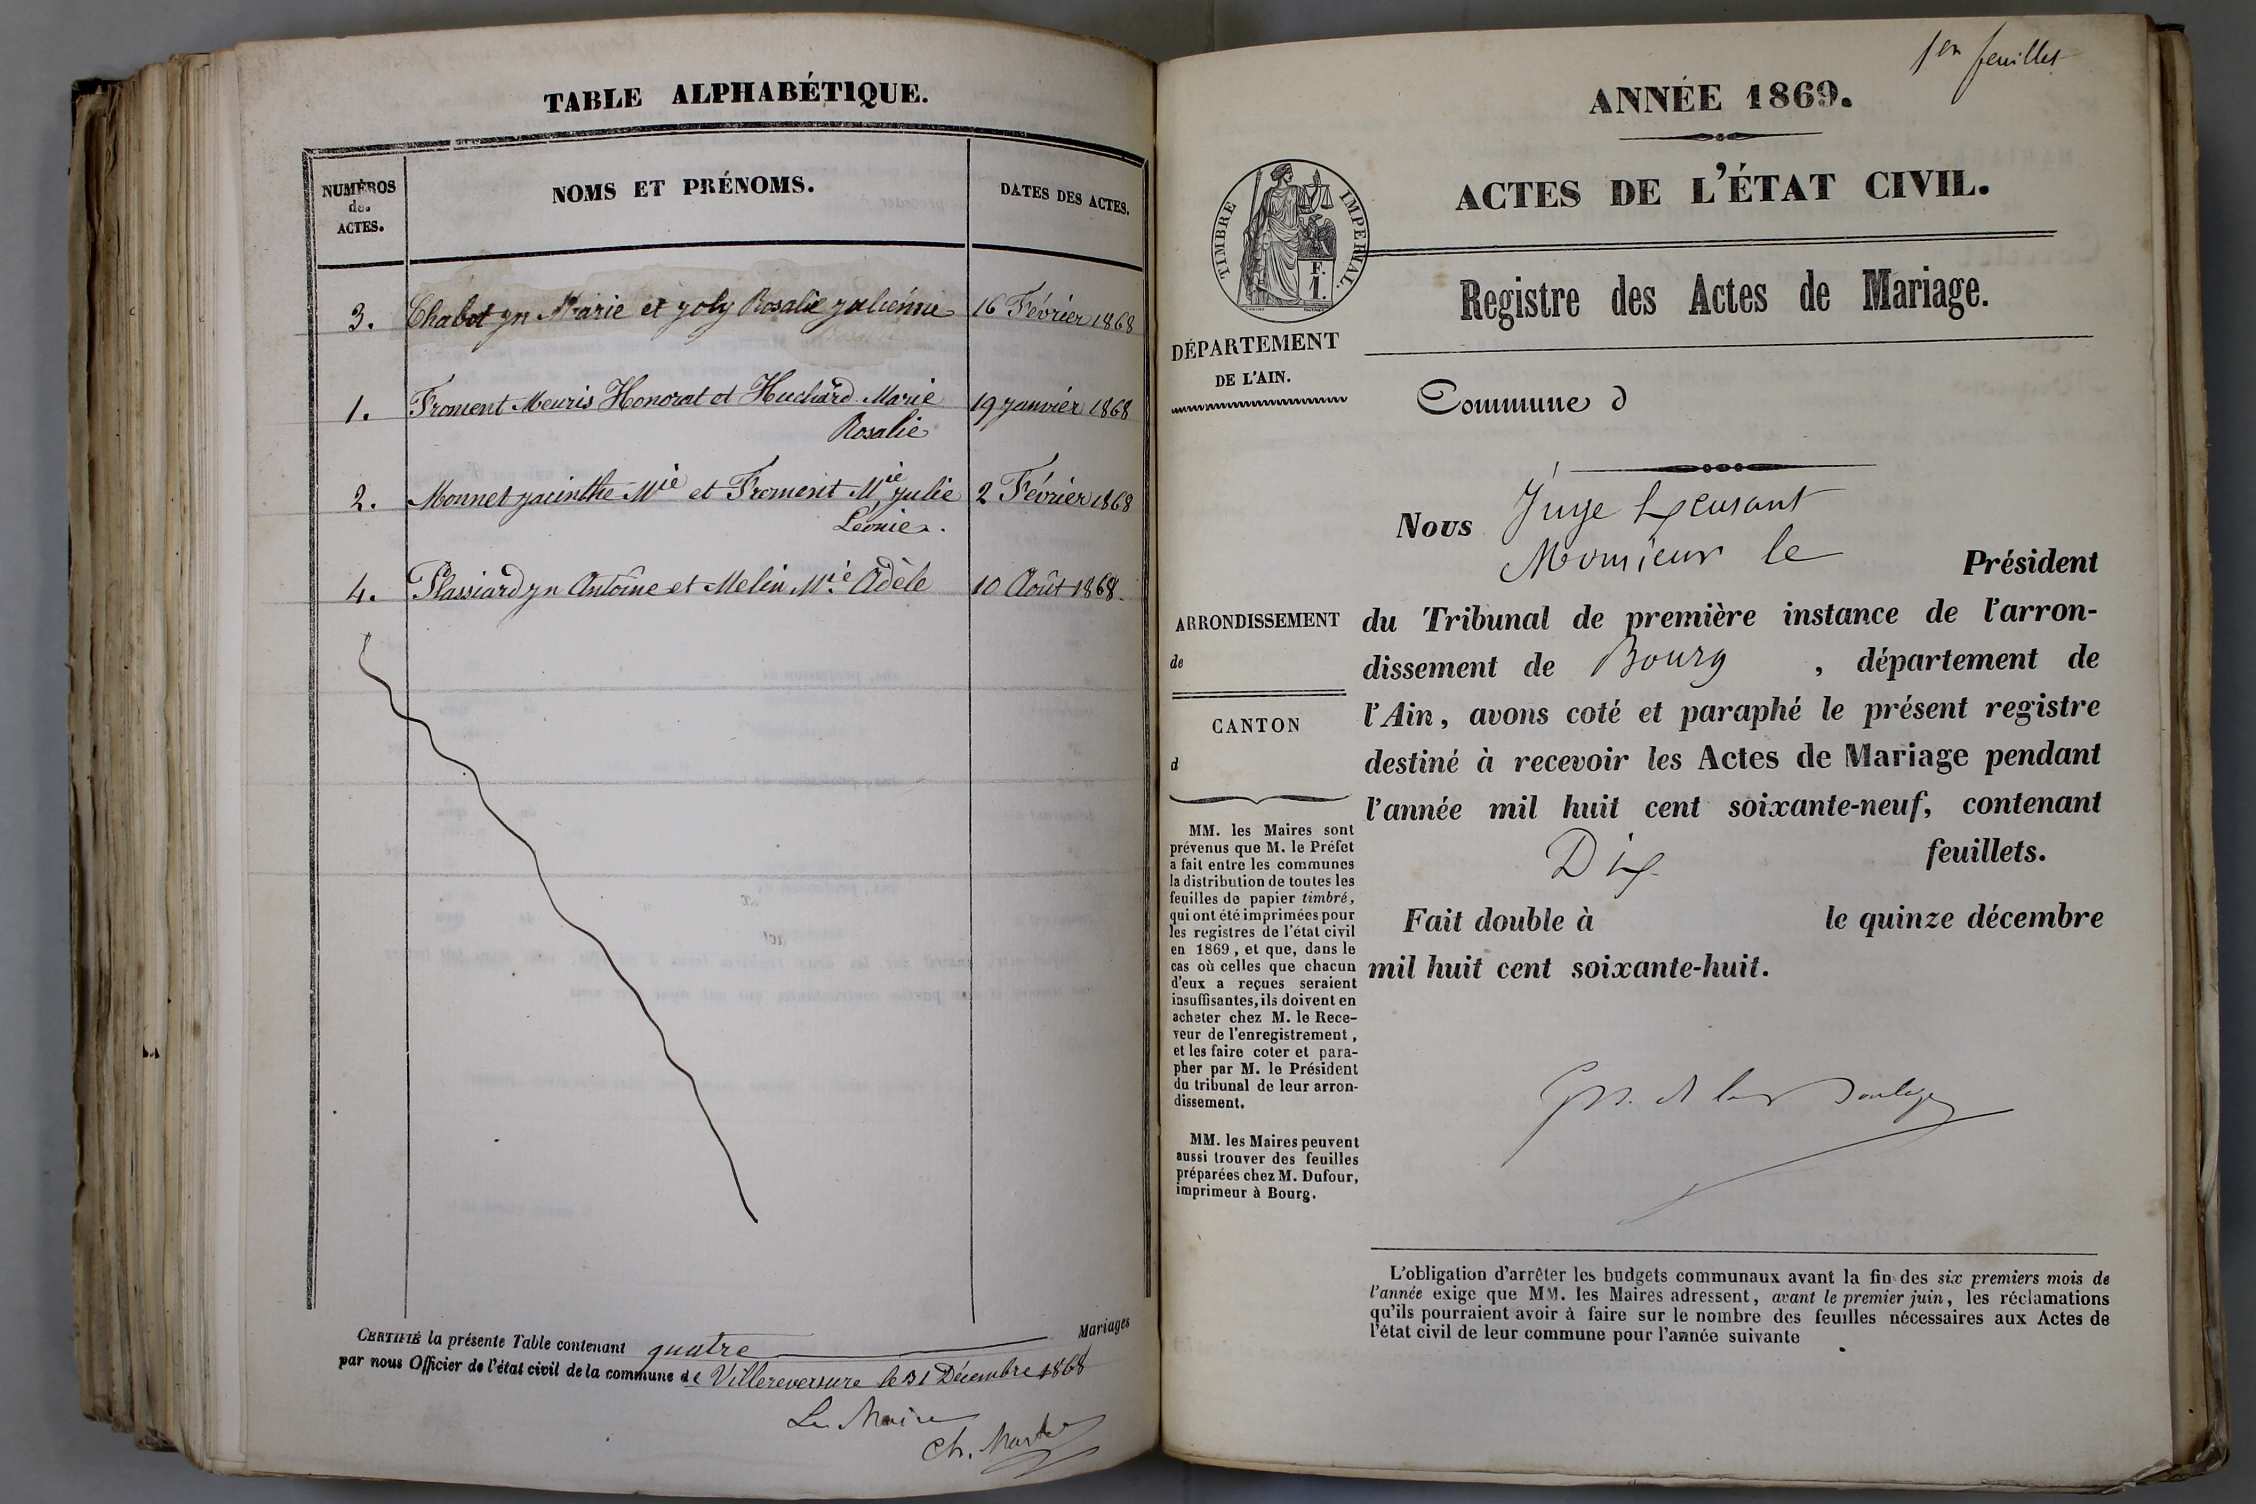 TABLE ALPHABÉTIQUE.
NUMÉROS
des
ACTES.
NOMS ET PRÉNOMS.
DATES DES ACTES.
3. Chabot Jn Marie et Joly Rosalie Julienne 16 Février 1868
1. Froment Meuris Honorat et Huchard Marie 19 Janvier 1868
Rosalie
2. Monnet Jacinthe Mie et Froment Mie Julie 2 Février 1868
Léonie.
4. Plassiard Jn Antoine et Melin Mie Adèle 10 Août 1868.
CERTIFIÉ la présente Table contenant quatre Mariages
par nous Officier de l'état civil de la commune de Villereversure le 31 Décembre 1868
Le Maire
Ch.
1er feuillet
ANNÉE 1869.
ACTES DE L'ÉTAT CIVIL.
TIMBRE IMPERIAL.
F.
1.
Registre des Actes de Mariage.
DÉPARTEMENT
DE L'AIN.
Commune d
Nous Juge
Monsieur le Président
ARRONDISSEMENT
de
CANTON
d
du Tribunal de première instance de l'arron-
dissement de Bourg , département de
l'Ain, avons coté et paraphé le présent registre
destiné à recevoir les Actes de Mariage pendant
l'année mil huit cent soixante-neuf, contenant
Dix feuillets.
Fait double à le quinze décembre
mil huit cent soixante-huit.
MM. les Maires sont
prévenus que M. le Préfet
a fait entre les communes
la distribution de toutes les
feuilles de papier timbré,
qui ont été imprimées pour
les registres de l'état civil
en 1869, et que, dans le
cas où celles que chacun
d'eux a reçues seraient
insuffisantes, ils doivent en
acheter chez M. le Rece-
veur de l'enregistrement,
et les faire coter et para-
pher par M. le Président
du tribunal de leur arron-
dissement.
MM. les Maires peuvent
aussi trouver des feuilles
préparées chez M. Dufour,
imprimeur à Bourg.
L'obligation d'arrêter les budgets communaux avant la fin des six premiers mois de
l'année exige que MM. les Maires adressent, avant le premier juin, les réclamations
qu'ils pourraient avoir à faire sur le nombre des feuilles nécessaires aux Actes de
l'état civil de leur commune pour l'année suivante